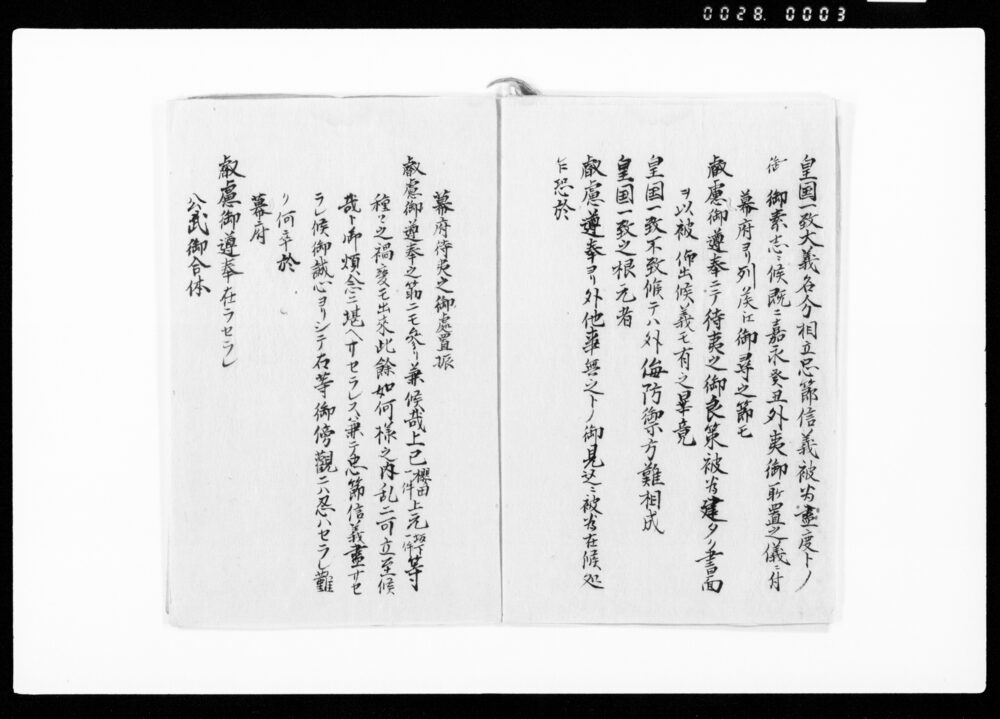 0028. 0003
皇国一致大義名分相立忠節信義被為盡度トノ
御素志ニ候既ニ嘉永癸丑外夷御所置之儀ニ付
幕府ヨリ列侯江御尋之節モ
叡慮御遵奉ニテ待夷之御良策被為建タリ書面
ヲ以被 仰出候義モ有之畢竟
皇国一致不致候テハ外侮防禦方難相成
皇国一致之根元者
叡慮遵奉ヨリ外他事無之トノ御見込ニ被為在候処
乍恐於
幕府待夷之御處置振
叡慮御遵奉之筋ニモ参リ兼候哉上巳櫻田一件上元坂下一件等
種々之禍変モ出来此餘如何様之内乱ニ可立至候
哉ト御煩念ニ堪ヘサセラレス兼テ忠節信義盡サセ
ラレ候御誠心ヨリシテ右等御傍觀ニハ忍ハセラレ難
リ何卒於
幕府
叡慮御遵奉在ラセラレ
公武御合体